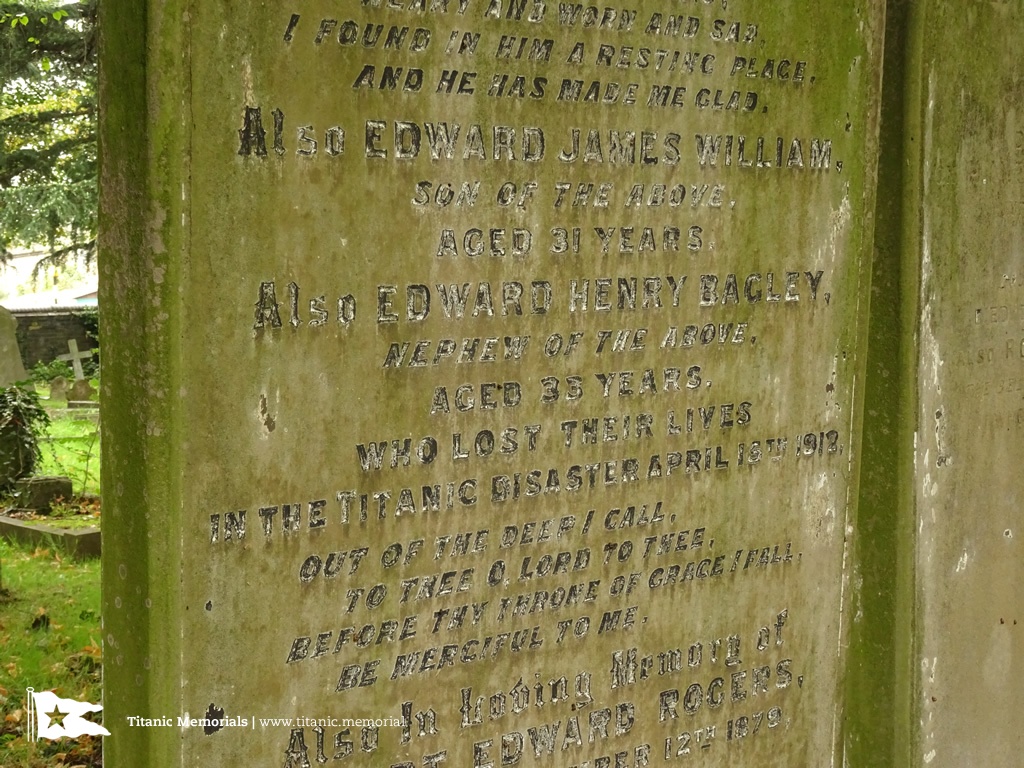 WEARY AND WORN AND SAD,
I FOUND IN HIM A RESTING PLACE,
AND HE HAS MADE ME GLAD.
Also EDWARD JAMES WILLIAM,
SON OF THE ABOVE,
AGED 31 YEARS.
Also EDWARD HENRY BAGLEY,
NEPHEW OF THE ABOVE,
AGED 33 YEARS.
WHO LOST THEIR LIVES
IN THE TITANIC DISASTER APRIL 15TH 1912.
OUT OF THE DEEP I CALL,
TO THEE O, LORD TO THEE,
BEFORE THY THRONE OF GRACE I FALL,
BE MERCIFUL TO ME.
Also In Loving Memory of
EDWARD ROGERS,
12TH 1879.
Titanic Memorials | www.titanic.memorial